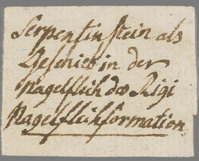 Serpentin Stein als
Geschieb in der
Nagelfluh des Rigi
Nagelfluhformation